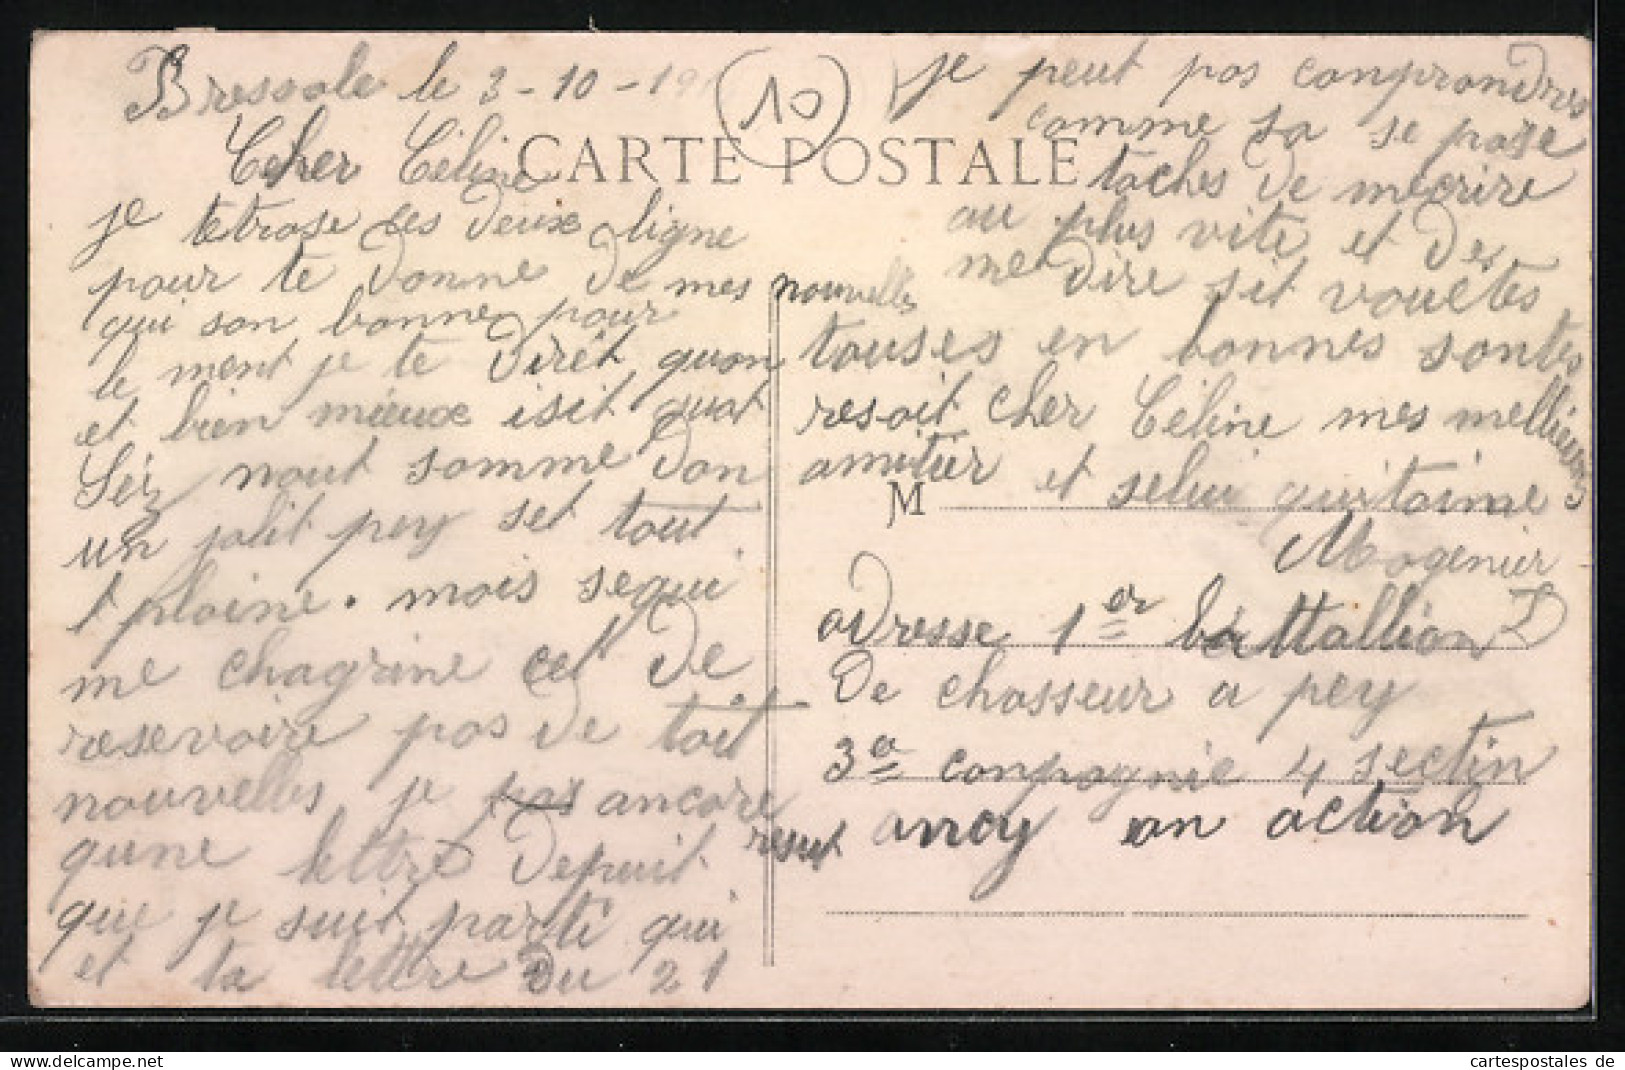 Bressole le 3-10-191
10
CARTE POSTALE
Cher Céline
je tetrase ses deux ligne
pour te donne de mes nouvelles
qui son bonne pour
le ment je te dirét quon
et bien mieux isit quat
Séz nout somme don
un jolit pey set tout
t plaine. mais sequi
me chagrine cet de
resevoire pas de toit
nouvelles je pas ancore resut
qune lettre depuit
que je suit parti qui
et ta lettre du 21
je peut pas conprondres
comme sa se passe
taches de mecrire
au plus vite et de
me dire sit vouetes
touses en bonnes santes
resoit cher Céline mes mellieures
amitier et selui quitaime
M
Mogenier
adresse 1er battallion
De chasseur a pey
3e conpagnie 4 sectin
anoy on action
cartespostales de